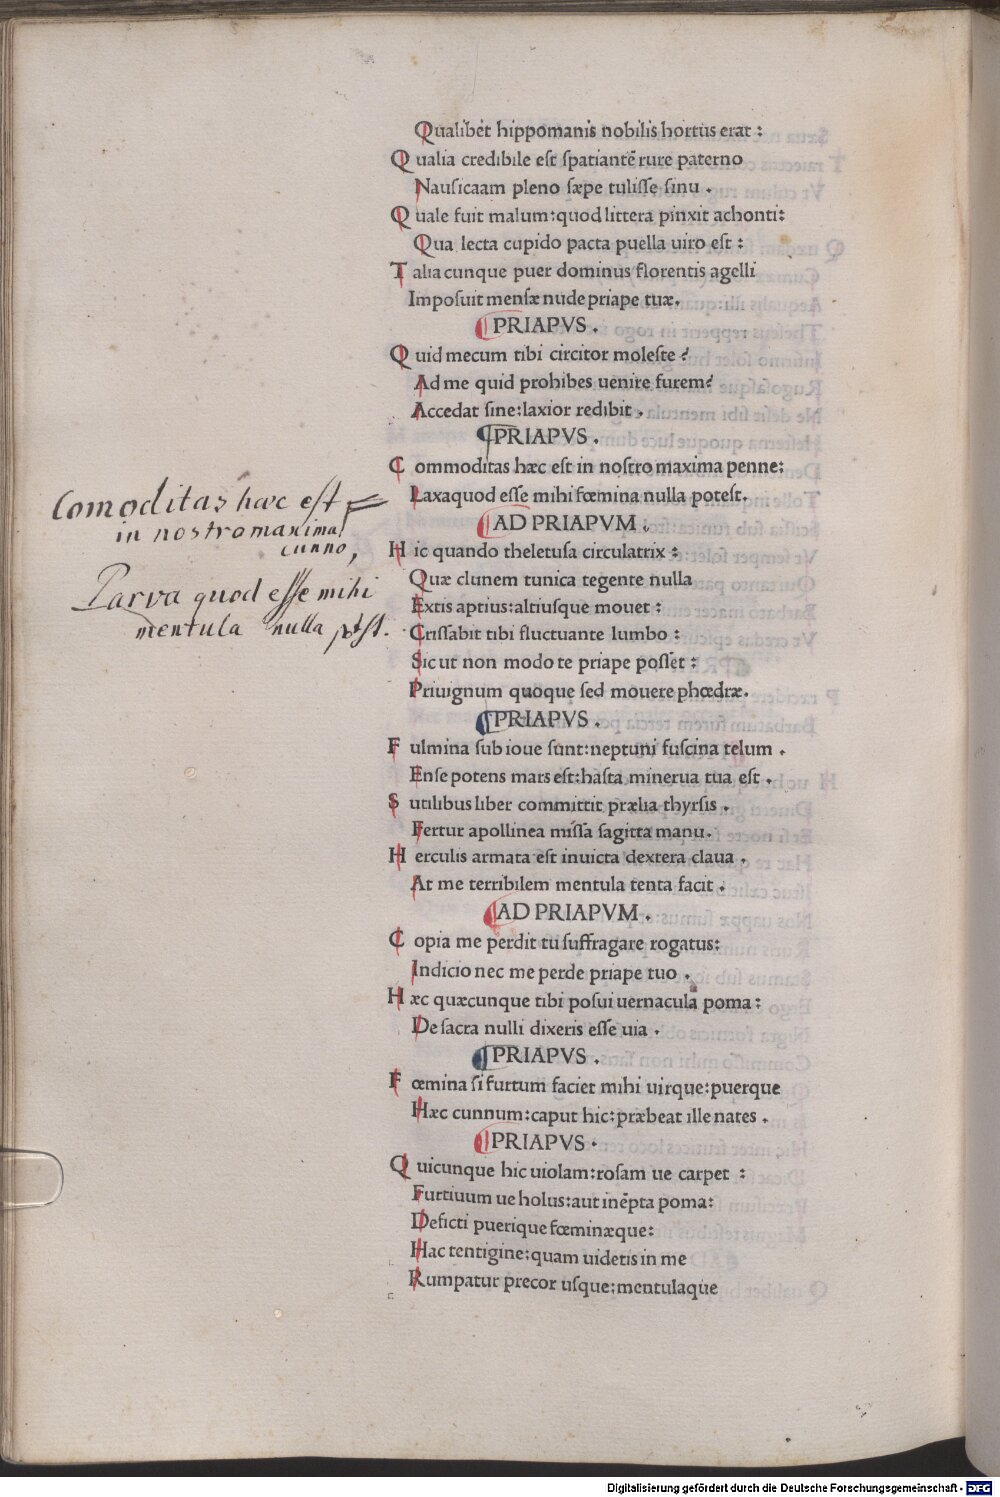 Qualibet hippomanis nobilis hortus erat :
Qualia credibile est spatiantē rure paterno
Nausicaam pleno sæpe tulisse sinu .
Quale fuit malum:quod littera pinxit achonti:
Qua lecta cupido pacta puella uiro est :
Talia cunque puer dominus florentis agelli
Imposuit mensæ nude priape tuæ.
PRIAPVS .
Quid mecum tibi circitor moleste ?
Ad me quid prohibes uenire furem?
Accedat sine:laxior redibit .
PRIAPVS .
Commoditas hæc est in nostro maxima penne:
Laxa quod esse mihi fœmina nulla potest.
Comoditas hæc est
in nostro maxima
cunno,
Parva quod esse mihi
mentula nulla potest.
AD PRIAPVM .
Hic quando theletusa circulatrix :
Quæ clunem tunica tegente nulla
Extis aptius:altiusque mouet :
Crissabit tibi fluctuante lumbo :
Sic ut non modo te priape posset :
Priuignum quoque sed mouere phœdræ.
PRIAPVS .
Fulmina sub ioue sunt:neptuni fuscina telum .
Ense potens mars est:hasta minerua tua est .
Sutilibus liber committit prælia thyrsis .
Fertur apollinea missa sagitta manu.
Herculis armata est inuicta dextera claua .
At me terribilem mentula tenta facit .
AD PRIAPVM .
Copia me perdit tu suffragare rogatus:
Indicio nec me perde priape tuo .
Hæc quæcunque tibi posui uernacula poma :
De sacra nulli dixeris esse uia .
PRIAPVS .
Fœmina si furtum faciet mihi uirque:puerque
Hæc cunnum:caput hic:præbeat ille nates .
PRIAPVS .
Quicunque hic uiolam:rosam ue carpet :
Furtiuum ue holus:aut inēpta poma:
Deficti puerique fœminæque:
Hac tentigine:quam uidetis in me
Rumpatur precor usque:mentulaque
Digitalisierung gefördert durch die Deutsche Forschungsgemeinschaft - DFG